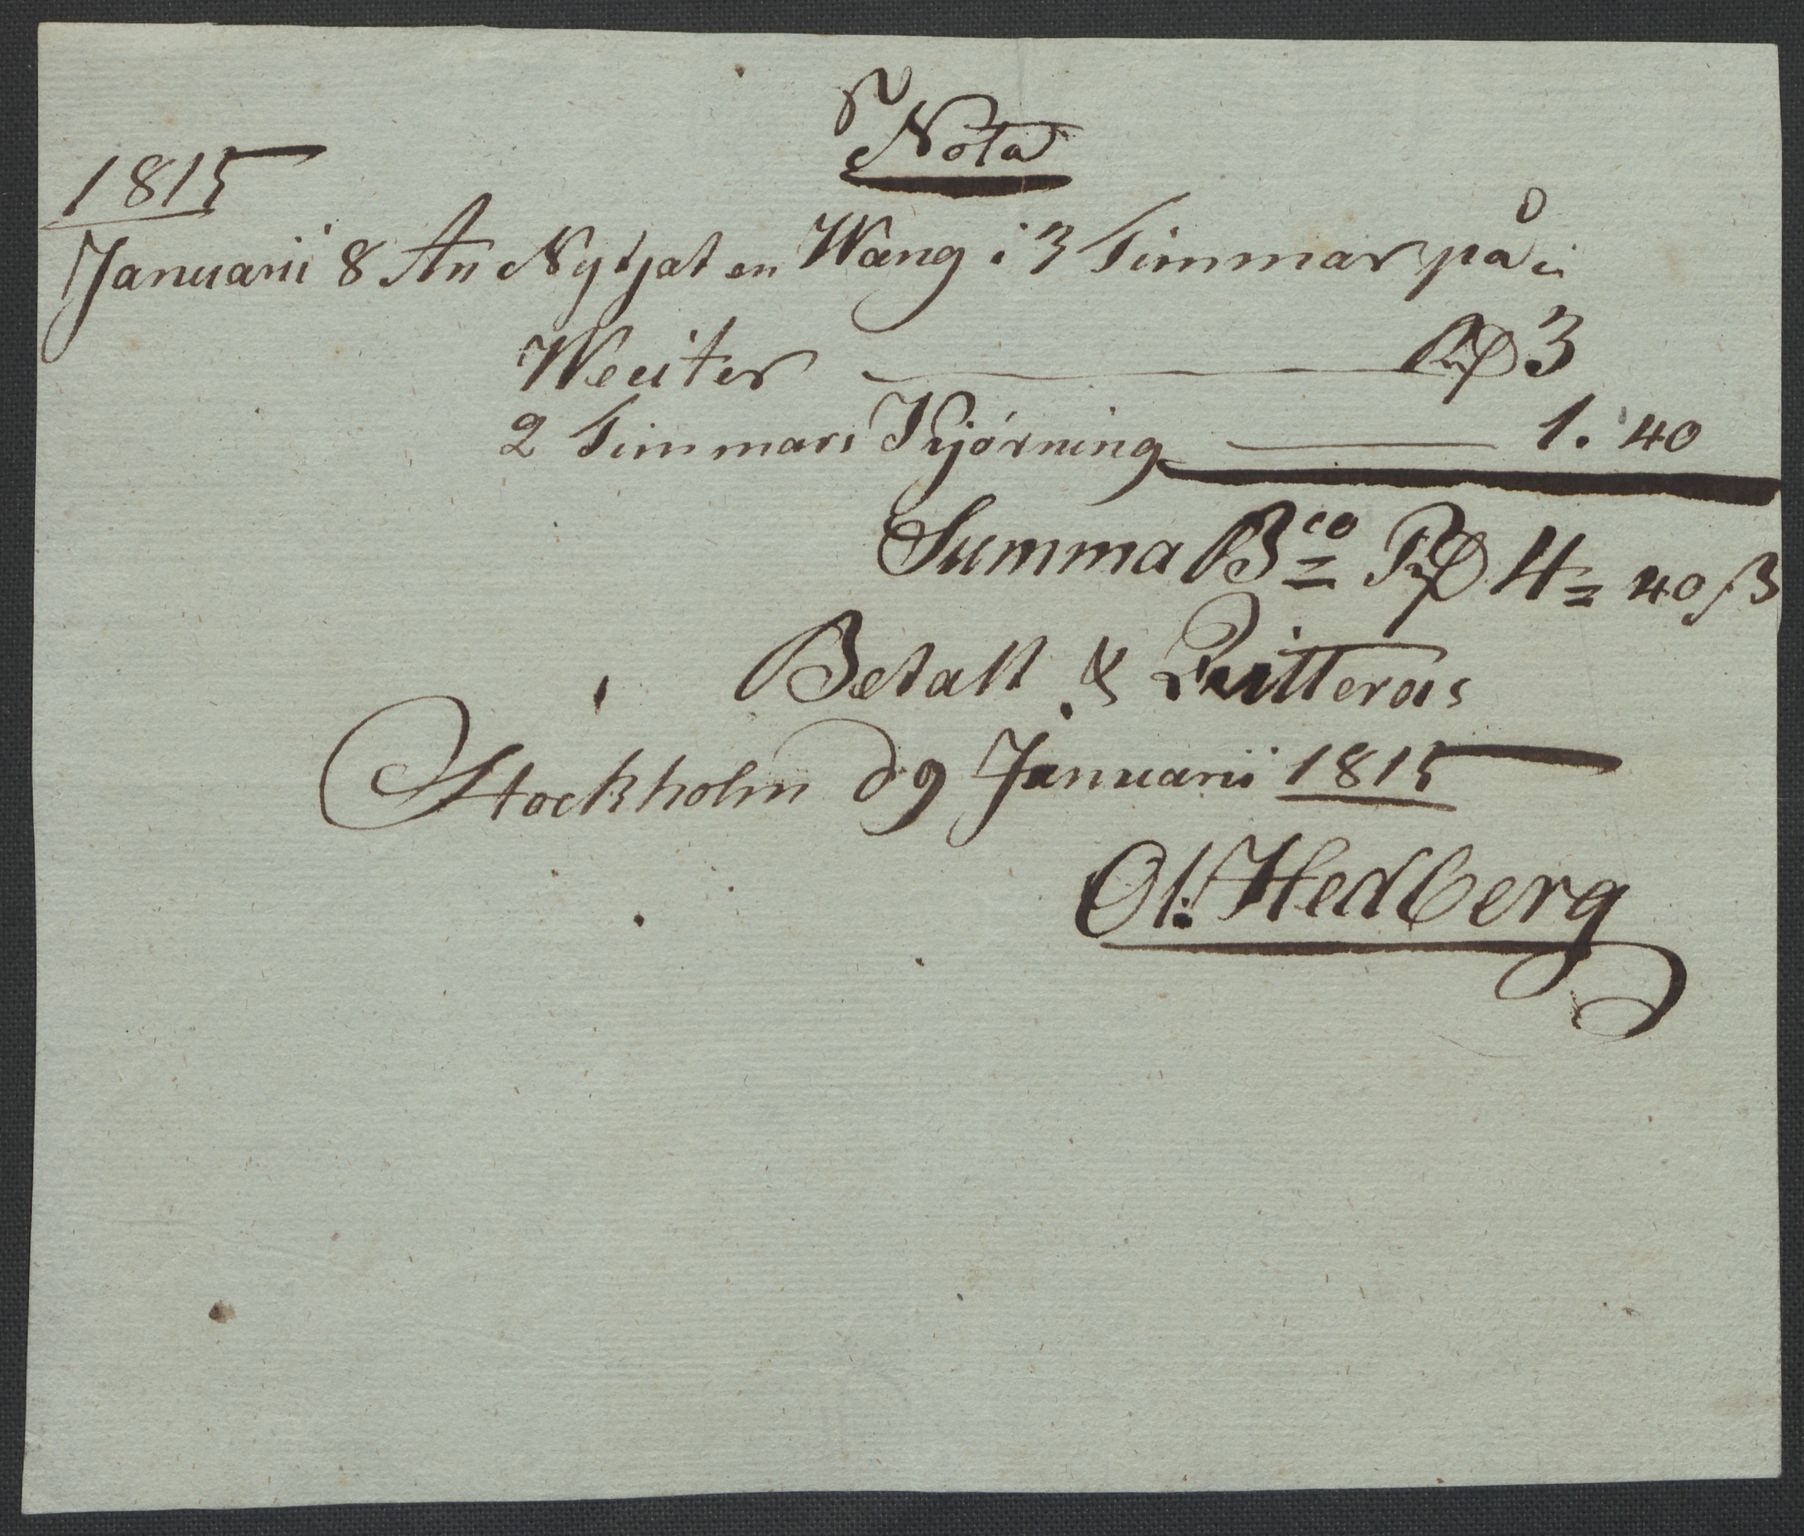 Nota
1815
Januarii 8 An Nytjat en Wang i 3 Timmar på
Weiter Rd 3
2 Timmars Kjörning 1. 40
Summa Bco Rd 4 = 40 ß
Betalt & Quitteras
Stockholm d 9 Januarii 1815
Ol: Hedberg